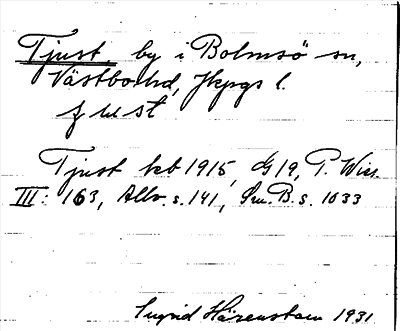 Tjust, by i Bolmsö sn,
Västbo hd, Jkpgs l.
just
Tjust kb 1915, G 19, P. Wies.
III: 163, Allv. s. 141, Sm. B. s. 1033
Ingrid Härenstam 1931